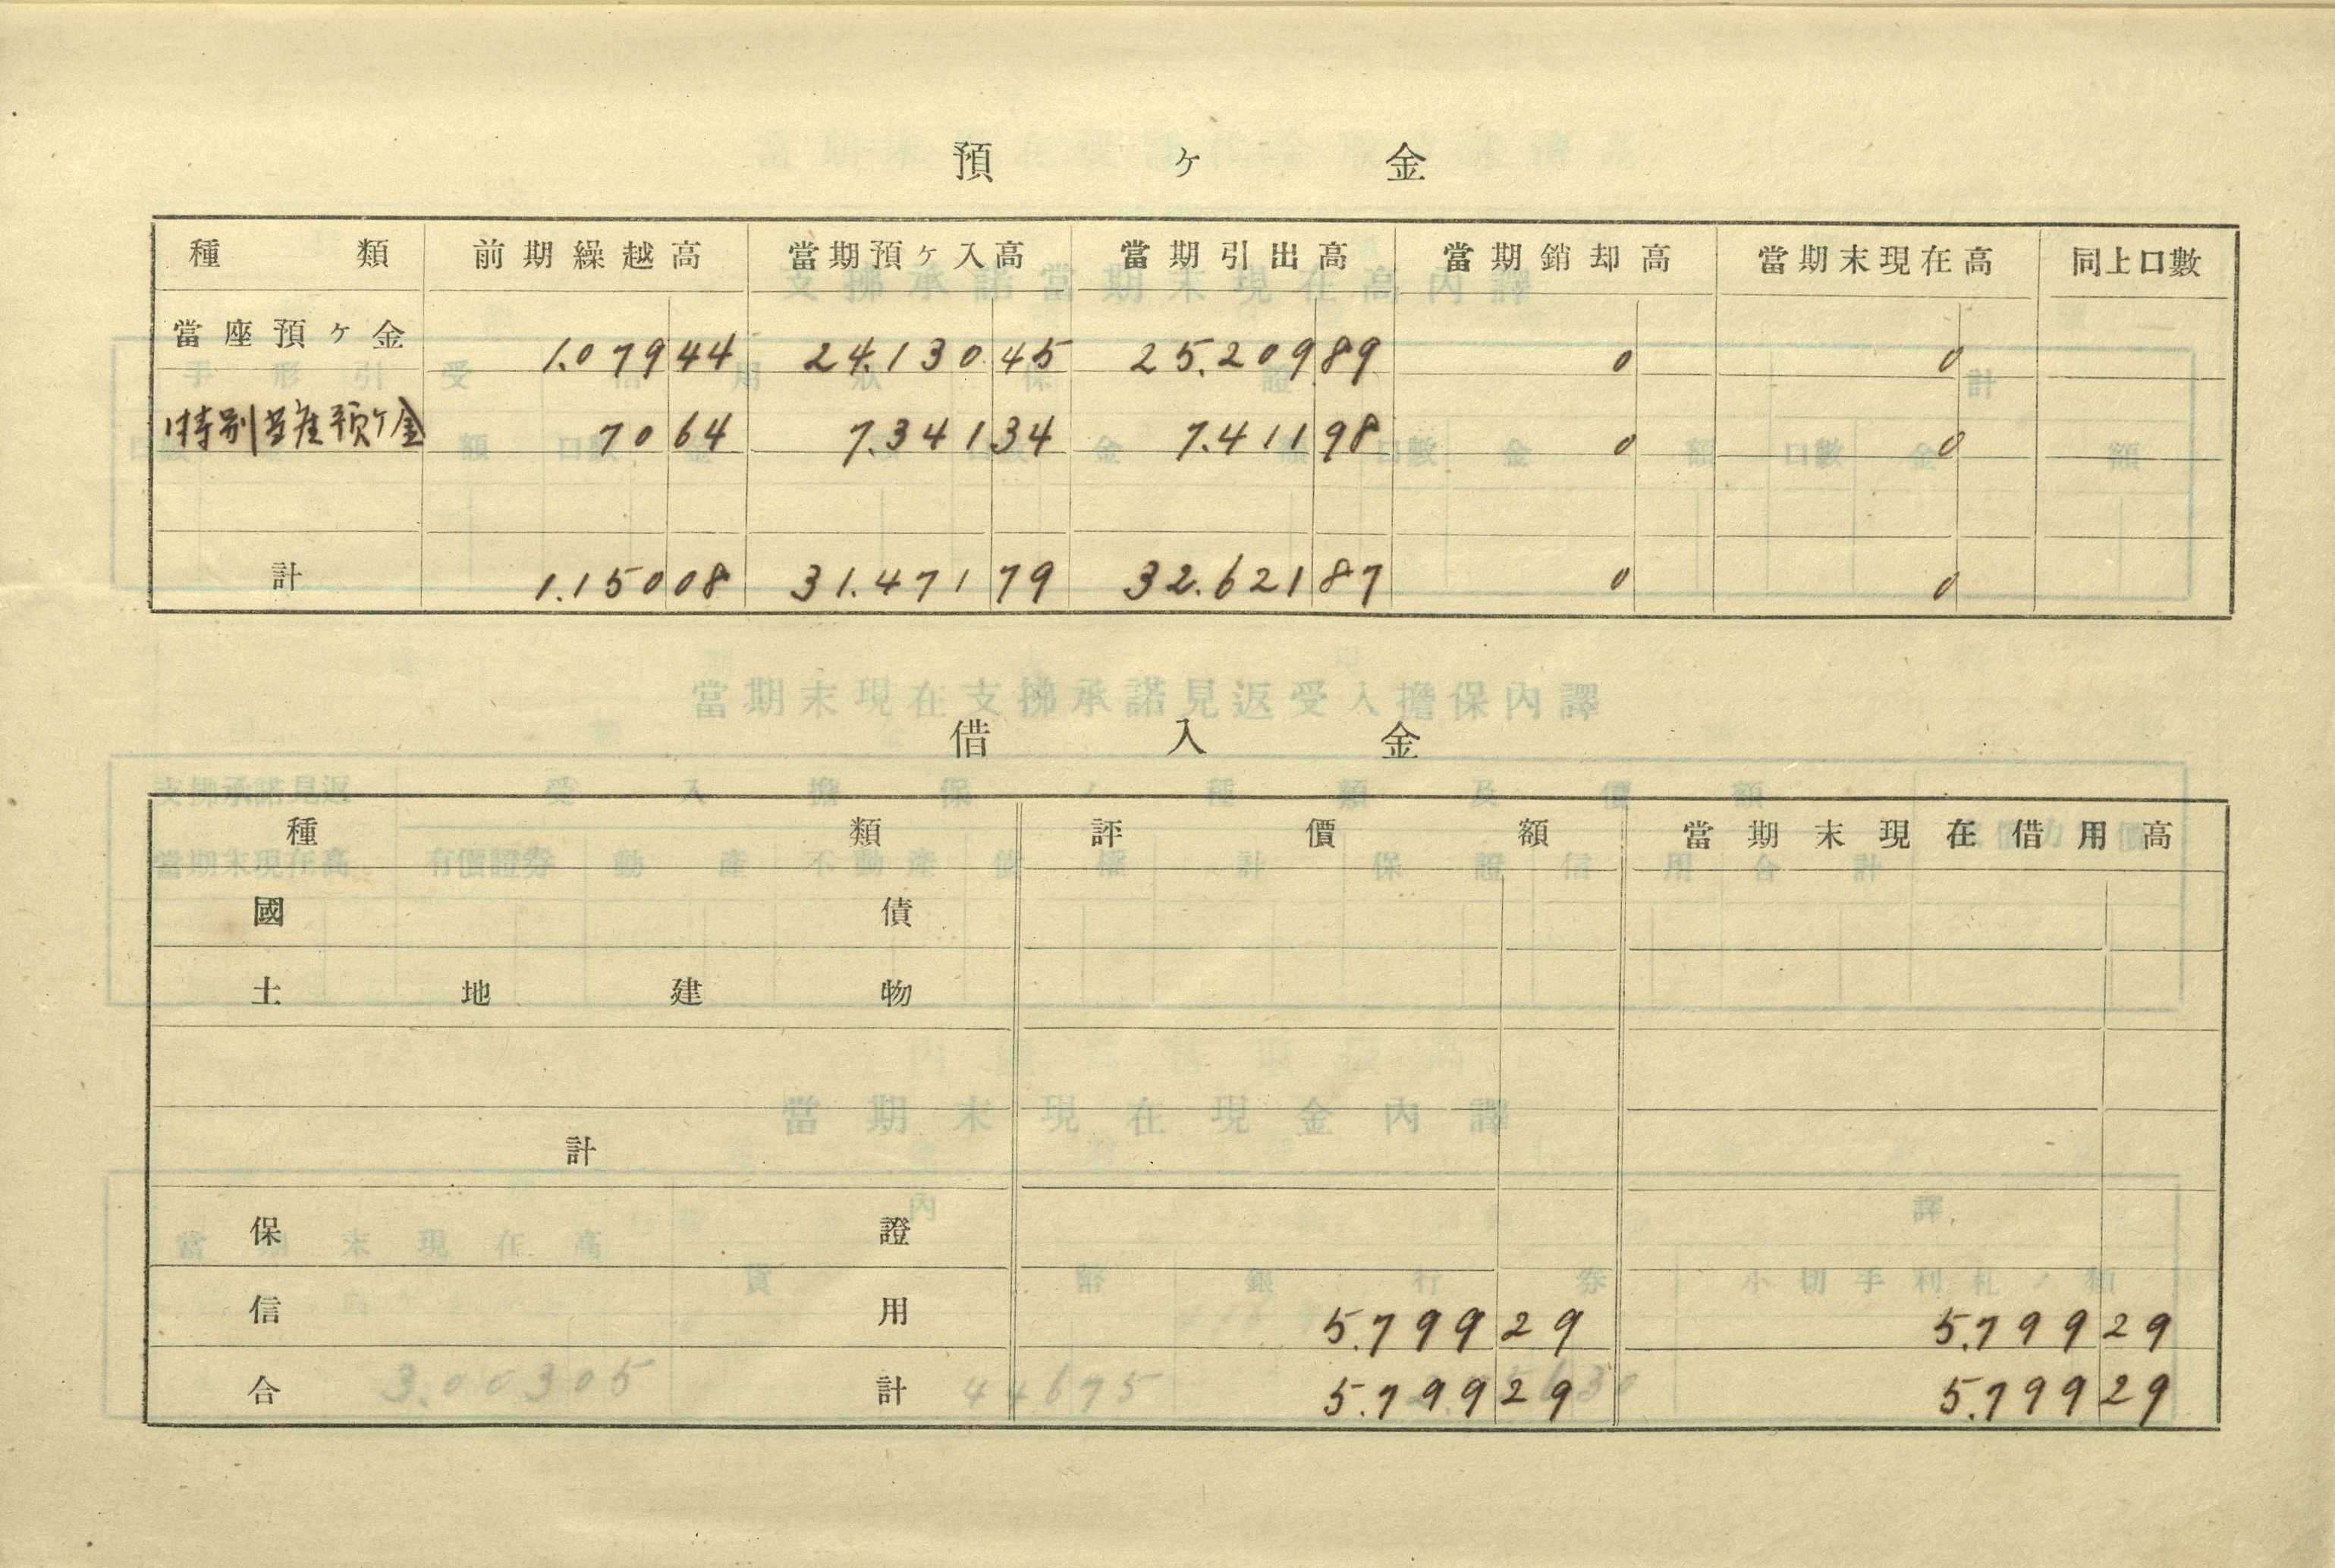 預ヶ金
種類 前期繰越高 當期預ヶ入高 當期引出高 當期銷却高 當期末現在高 同上口數
當座預ヶ金 1.079 44 24.130 45 25.209 89 0 0
特別當座預ヶ金 70 64 7.341 34 7.411 98 0 0
計 1.150 08 31.471 79 32.621 87 0 0
借入金
種類 評價額 當期末現在借用高
國債
土地建物
計
保證
信用 5.799 29 5.799 29
合計 5.799 29 5.799 29